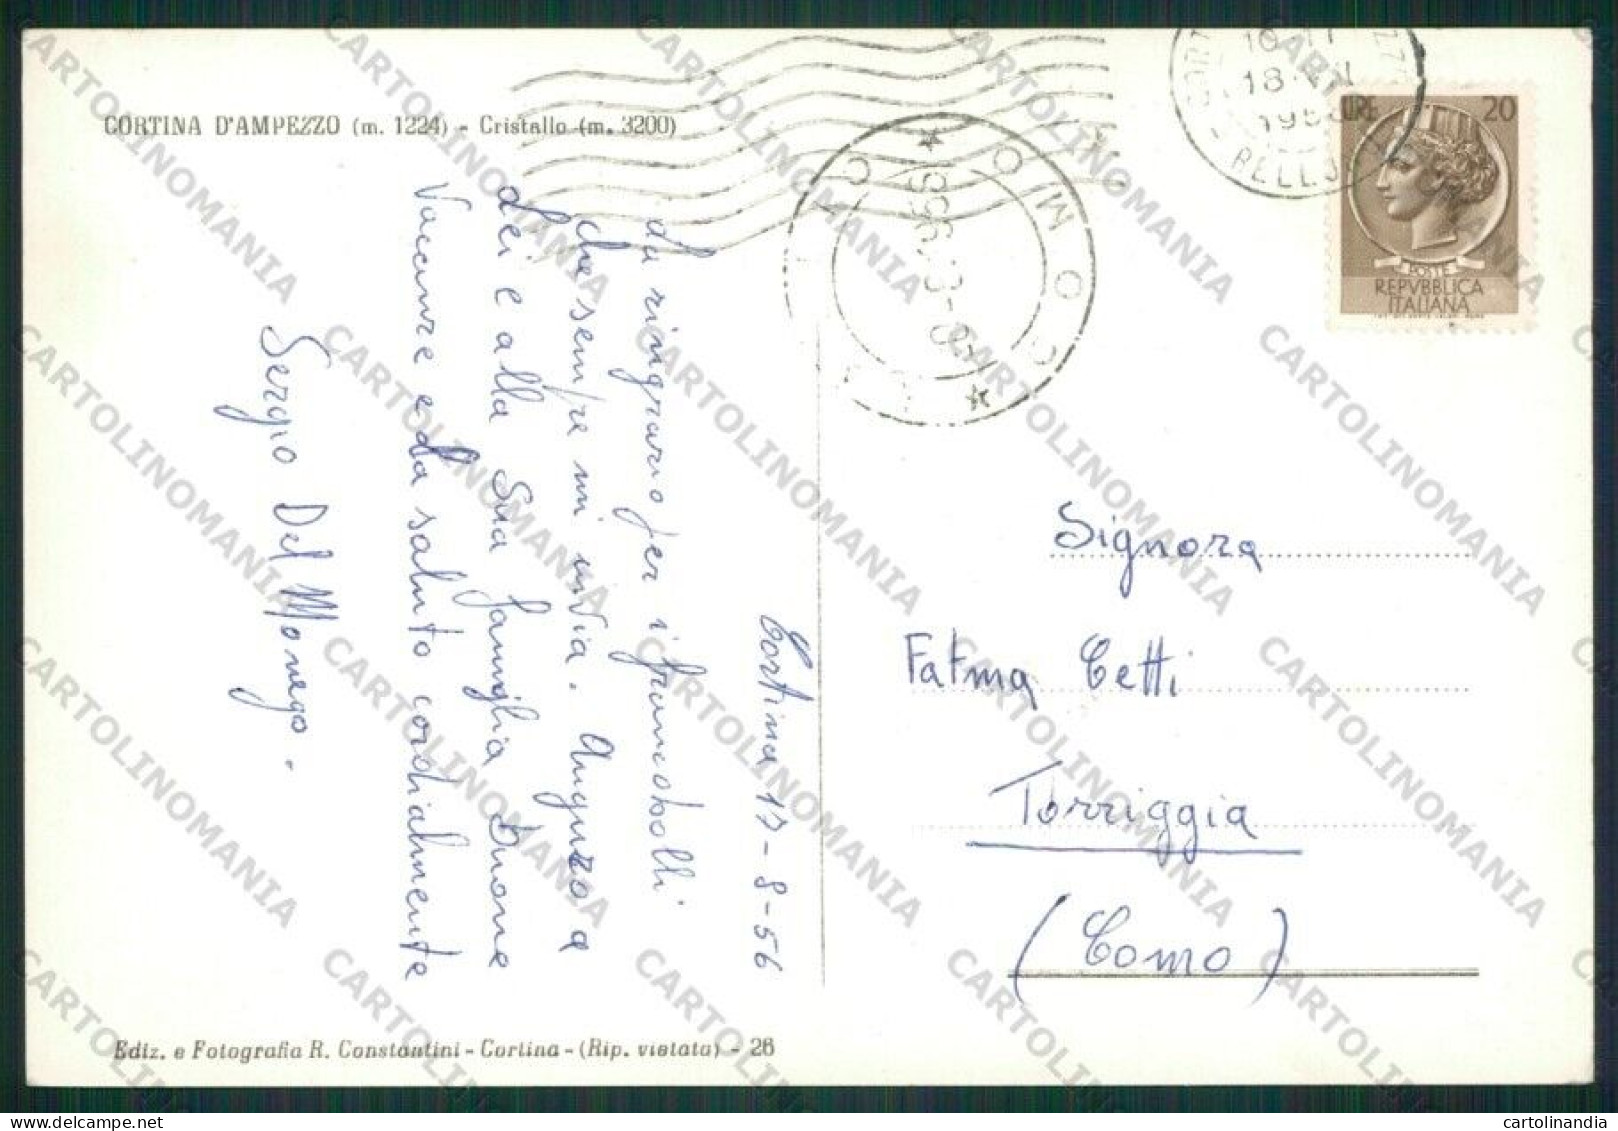 CORTINA D'AMPEZZO (m. 1224) - Cristallo (m. 3200)
LIRE 20
POSTE
REPVBBLICA
ITALIANA
18
COMO
Cortina 17-8-56
La ringrazio per i francobolli
che sempre mi invia. Auguro a
Lei e alla Sua famiglia Buone
Vacanze e La saluto cordialmente
Sergio Del Monego.
Signora
Fatma Cetti
Torriggia
(Como)
Ediz. e Fotografia R. Constantini - Cortina - (Rip. vietata) - 26
CARTOLINOMANIA
cartolinandia